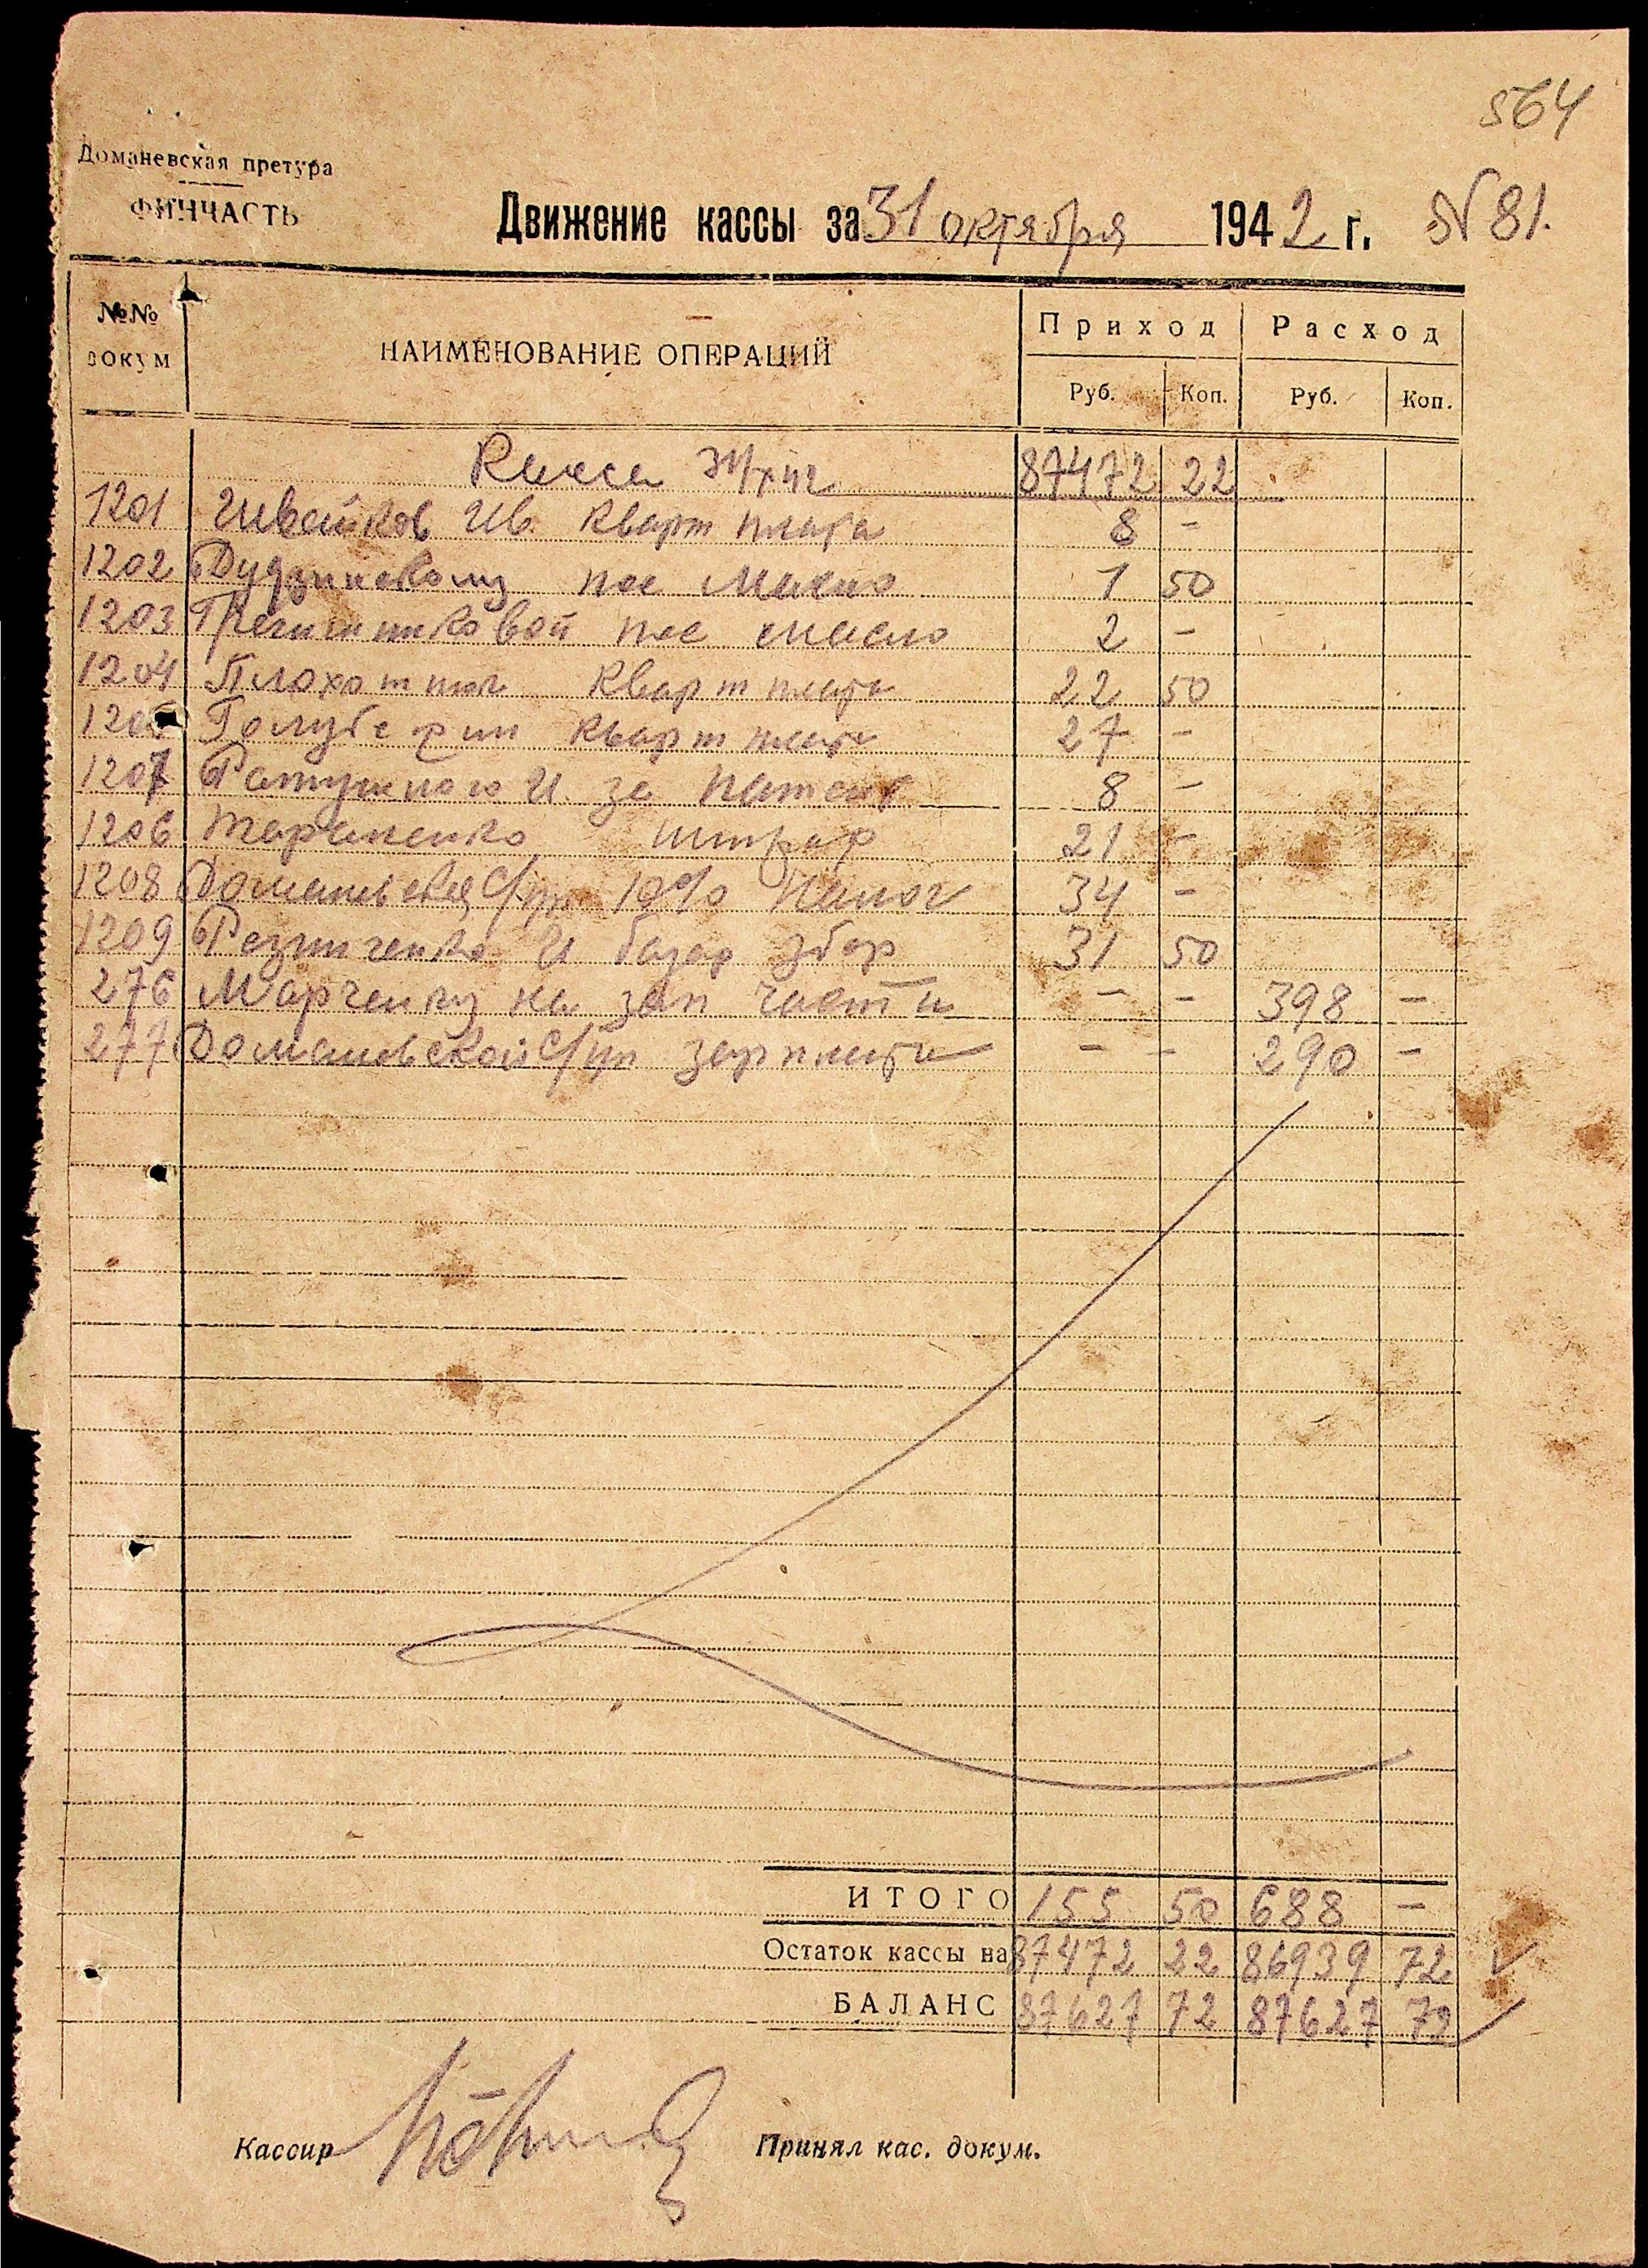 564
Доманевская претура
ФИНЧАСТЬ
Движение кассы за 31 октября 1942 г. № 81.
№№ докум НАИМЕНОВАНИЕ ОПЕРАЦИЙ Приход Расход
Руб. Коп. Руб. Коп.
Касса 87472 22
1201 Ив. кварт плата 8 -
1202 Дудзинскому масло 1 50
1203 масло 2 -
1204 Плохотнюк кварт плата 22 50
1205 Голуб кварт плата 27 -
1207 Ратушного И. за патент 8 -
1206 Тараненко штраф 21 -
1208 Доманевская с/пр 10% налог 34 -
1209 Резниченко И. базар збор 31 50
276 Марченку на зап части - - 398 -
277 Доманевской с/пр зарплата - - 290 -
ИТОГО 155 50 688 -
Остаток кассы на 87472 22 86939 72
БАЛАНС 87627 72 87627 72
Кассир Принял кас. докум.